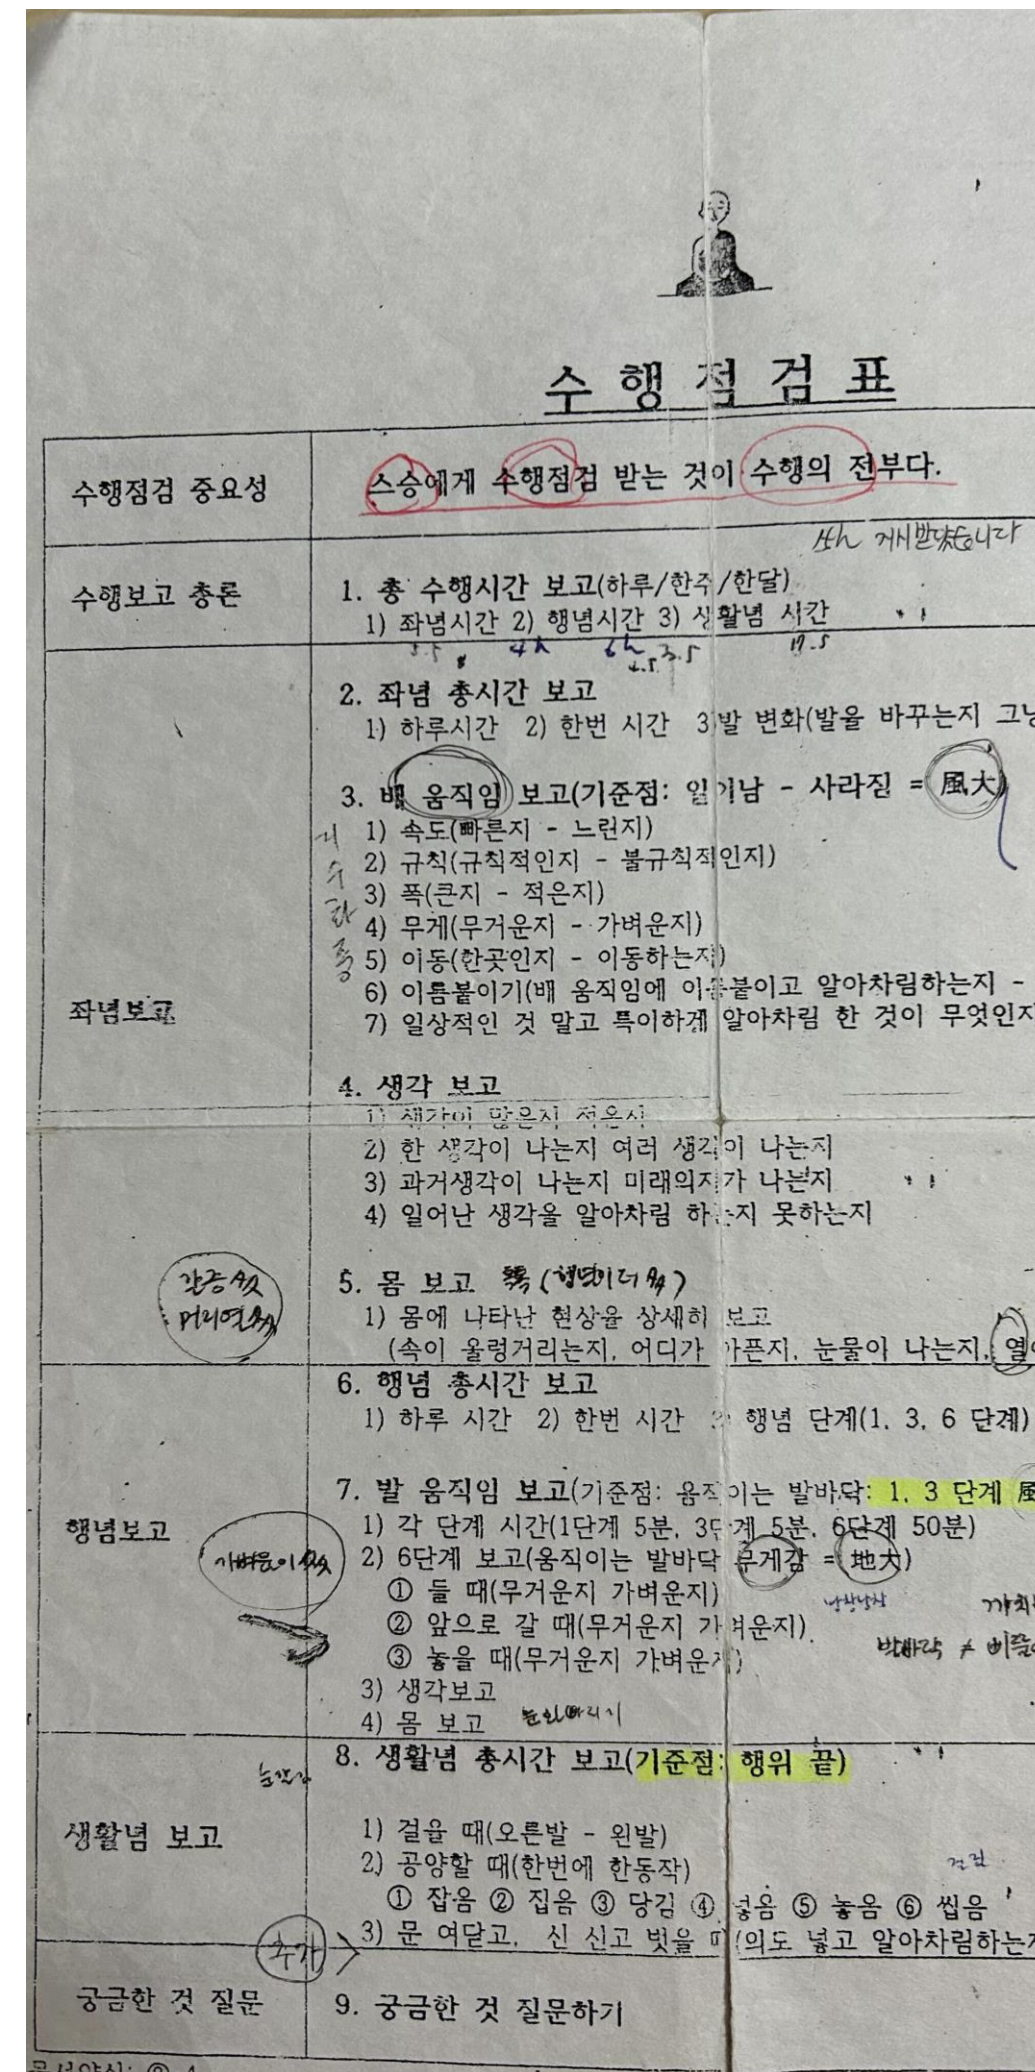 수행점검표
수행점검 중요성
스승에게 수행점검 받는 것이 수행의 전부다.
지시받았습니다
수행보고 총론
1. 총 수행시간 보고(하루/한주/한달)
1) 좌념시간 2) 행념시간 3) 생활념 시간
5.5 4h 6h 4.5 3.5 17.5
좌념보고
2. 좌념 총시간 보고
1) 하루시간 2) 한번 시간 3)발 변화(발을 바꾸는지 그냥
3. 배 움직임 보고(기준점: 일어남 - 사라짐 = 風大)
1) 속도(빠른지 - 느린지)
2) 규칙(규칙적인지 - 불규칙적인지)
3) 폭(큰지 - 적은지)
4) 무게(무거운지 - 가벼운지)
5) 이동(한곳인지 - 이동하는지)
6) 이름붙이기(배 움직임에 이름붙이고 알아차림하는지 -
7) 일상적인 것 말고 특이하게 알아차림 한 것이 무엇인지
지수화풍
4. 생각 보고
1) 생각이 많은지 적은지
2) 한 생각이 나는지 여러 생각이 나는지
3) 과거생각이 나는지 미래의지가 나는지
4) 일어난 생각을 알아차림 하는지 못하는지
갈증 多
머리열 多
5. 몸 보고 (행념이 더 多)
1) 몸에 나타난 현상을 상세히 보고
(속이 울렁거리는지, 어디가 아픈지, 눈물이 나는지, 열이
행념보고
6. 행념 총시간 보고
1) 하루 시간 2) 한번 시간 3) 행념 단계(1, 3, 6 단계)
7. 발 움직임 보고(기준점: 움직이는 발바닥: 1, 3 단계 風
1) 각 단계 시간(1단계 5분, 3단계 5분, 6단계 50분)
2) 6단계 보고(움직이는 발바닥 무게감 = 地大)
가벼움이 多
① 들 때(무거운지 가벼운지)
② 앞으로 갈 때(무거운지 가벼운지)
발바닥 ≠
③ 놓을 때(무거운지 가벼운지)
3) 생각보고
4) 몸 보고
생활념 보고
8. 생활념 총시간 보고(기준점: 행위 끝)
1) 걸을 때(오른발 - 왼발)
2) 공양할 때(한번에 한동작)
① 잡음 ② 집음 ③ 당김 ④ 넣음 ⑤ 놓음 ⑥ 씹음
3) 문 여닫고, 신 신고 벗을 때(의도 넣고 알아차림하는지
추가
궁금한 것 질문
9. 궁금한 것 질문하기